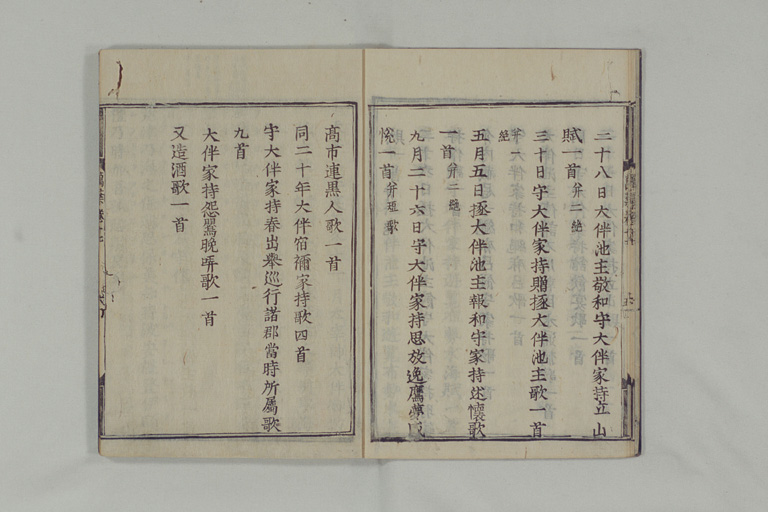 二十八日大伴池主敬和守大伴家持立山
賦一首并二絶
三十日守大伴家持贈掾大伴池主歌一首
并一絶
五月五日掾大伴池主報和守家持述懷歌
一首并二絶
九月二十六日守大伴家持思放逸鷹夢
悦一首并短歌
高市連黒人歌一首
同二十年大伴宿禰家持歌四首
守大伴家持春出擧巡行諸郡當時所屬歌
九首
大伴家持怨鸎晩哢歌一首
又造酒歌一首